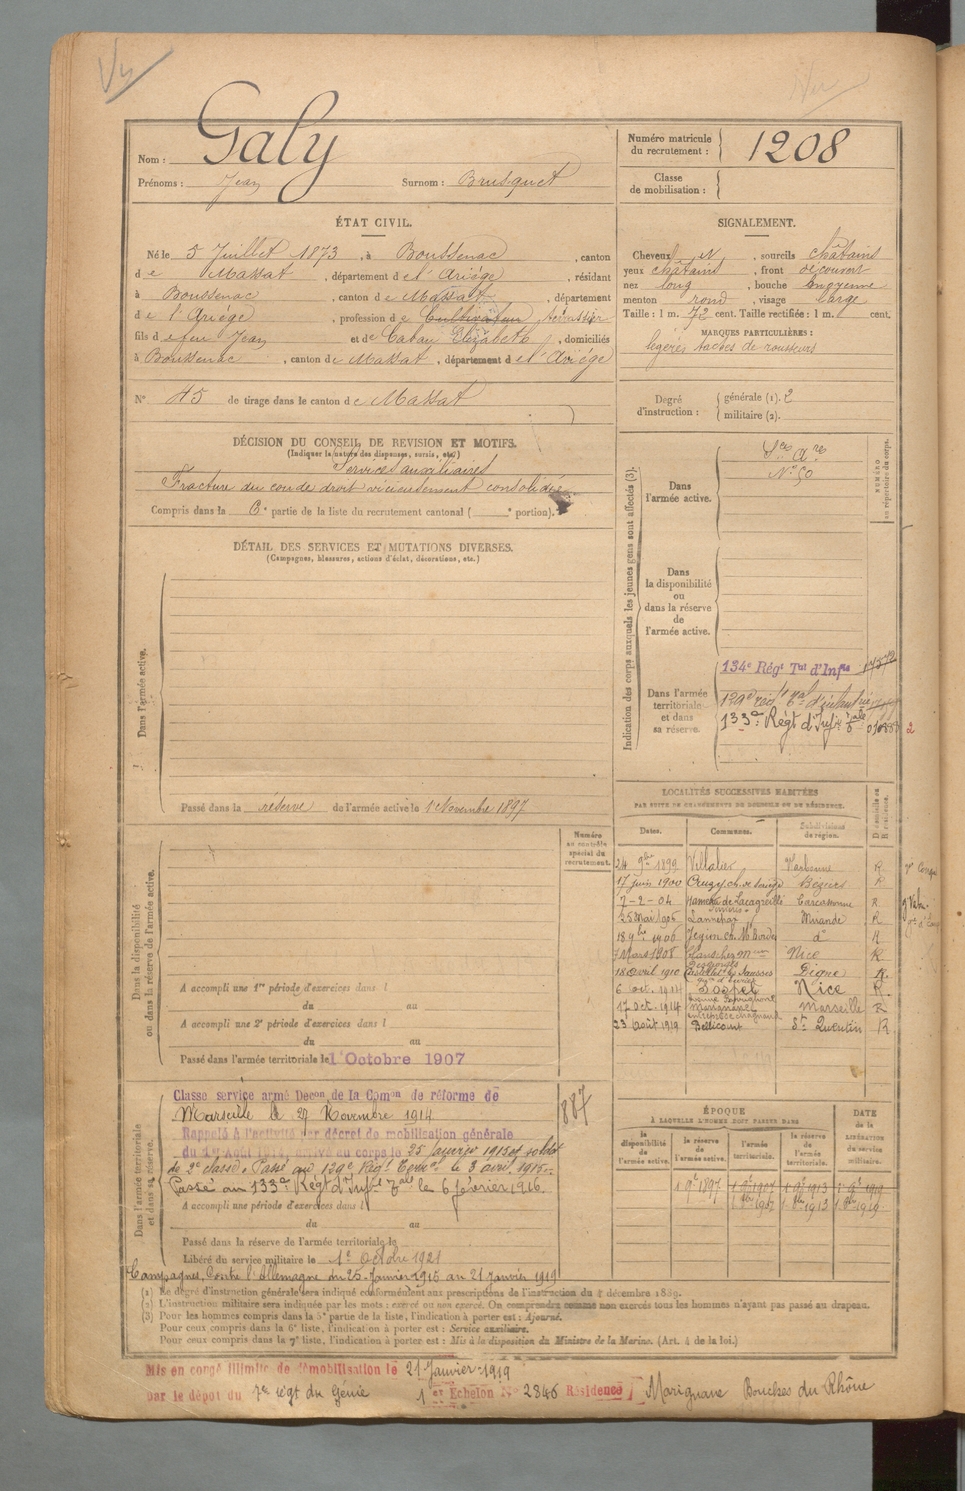 Nom : Galy
Prénoms : Jean Surnom : Brusquet
Numéro matricule du recrutement : 1208
Classe de mobilisation :
ÉTAT CIVIL.
Né le 5 Juillet 1873, à Boussenac, canton
de Massat, département de l'Ariège, résidant
à Boussenac, canton de Massat, département
de l'Ariège, profession de Cultivateur
fils de feu Jean et de Cabau Elizabeth, domiciliés
à Boussenac, canton de Massat, département de l'Ariège
N° 45 de tirage dans le canton de Massat
SIGNALEMENT.
Cheveux N, sourcils châtains
yeux châtains, front découvert
nez long, bouche moyenne
menton rond, visage large
Taille : 1 m. 72 cent. Taille rectifiée : 1 m. cent.
MARQUES PARTICULIÈRES :
légères taches de rousseurs
Degré d'instruction : générale (1). 2
militaire (2).
DÉCISION DU CONSEIL DE REVISION ET MOTIFS.
(Indiquer la nature des dispenses, sursis, etc.)
Services auxiliaires
Fracture du coude droit vicieusement consolidée
Compris dans la 6e partie de la liste du recrutement cantonal ( e portion).
DÉTAIL DES SERVICES ET MUTATIONS DIVERSES.
(Campagnes, blessures, actions d'éclat, décorations, etc.)
Dans l'armée active.
Passé dans la réserve de l'armée active le 1 Novembre 1897
Indication des corps auxquels les jeunes gens sont affectés (3).
NUMÉRO au répertoire du corps.
Dans l'armée active.
Ses Ares
N° 50
Dans la disponibilité ou dans la réserve de l'armée active.
Dans l'armée territoriale et dans sa réserve.
134e Régt Tal d'Infie
129e rég t Tal d'infanterie
133e Régt d'Infie Tale
2
LOCALITÉS SUCCESSIVES HABITÉES
PAR SUITE DE CHANGEMENTS DE DOMICILE OU DE RÉSIDENCE.
Dates. Communes. Subdivisions de région. D domicile ou R résidence.
24 9bre 1899 Villalier Narbonne R
17 juin 1900 Cruzy Béziers R
7-2-04 hameau de Lacagreille Carcassonne R
25 Mai 1906 Lannepax Mirande R
18 9bre 1906 Jegun do R
7 Mars 1908 Nice R
18 Avril 1910 Digne R
6 oct. 1914 Sospel Nice R
17 oct. 1914 Marignane Marseille R
23 août 1919 Bellicourt St Quentin R
Numéro au contrôle spécial du recrutement.
Dans la disponibilité ou dans la réserve de l'armée active.
A accompli une 1re période d'exercices dans l
du au
A accompli une 2e période d'exercices dans l
du au
Passé dans l'armée territoriale le 1 Octobre 1907
Dans l'armée territoriale et dans sa réserve.
Classe service armé Decon de la Comon de réforme de
Marseille le 27 Novembre 1914
887
Rappelé à l'activité par décret de mobilisation générale
du 1er Août 1914, arrivé au corps le 25 janvier 1915 et soldat
de 2e classe. Passé au 129e Régt Terral le 3 avril 1915.
Passé au 133e Régt d'Infie Tale le 6 février 1916.
A accompli une période d'exercices dans l
du au
Passé dans la réserve de l'armée territoriale le
Libéré du service militaire le 1er Octobre 1921
Campagnes. Contre l'Allemagne du 25 Janvier 1915 au 21 janvier 1919
ÉPOQUE
À LAQUELLE L'HOMME DOIT PASSER DANS
la disponibilité de l'armée active. la réserve de l'armée active. l'armée territoriale. la réserve de l'armée territoriale. DATE de la LIBÉRATION du service militaire.
1 9e 1897 1 9e 1907 1 9e 1913 1 9e 1919
1 8bre 1907 1 8bre 1913 1 8bre 1919
(1) Le degré d'instruction générale sera indiqué conformément aux prescriptions de l'instruction du 4 décembre 1889.
(2) L'instruction militaire sera indiquée par les mots : exercé ou non exercé. On comprendra comme non exercés tous les hommes n'ayant pas passé au drapeau.
(3) Pour les hommes compris dans la 5e partie de la liste, l'indication à porter est : Ajourné.
Pour ceux compris dans la 6e liste, l'indication à porter est : Service auxiliaire.
Pour ceux compris dans la 7e liste, l'indication à porter est : Mis à la disposition du Ministre de la Marine. (Art. 4 de la loi.)
Mis en congé illimité de démobilisation le 21 Janvier 1919
par le dépôt du 7e régt du Génie 1er Echelon N° 2346 Résidence Marignane Bouches du Rhône